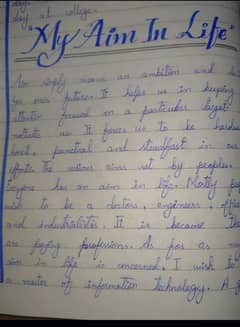 day at college.
"My Aim In Life"
Aim simply means an ambition and
for our future. It helps us in keeping
attention focused on a particular target
motivate us It forces us to be
punctual and steadfast in our
efforts the various aims set by people.
Everyone has an aim in life. Mostly
wish to be a doctors, engineers,
and industrialists. It is because
are paying professions. As for as my
aim in life is concerned, I wish to
a master of information technology. A